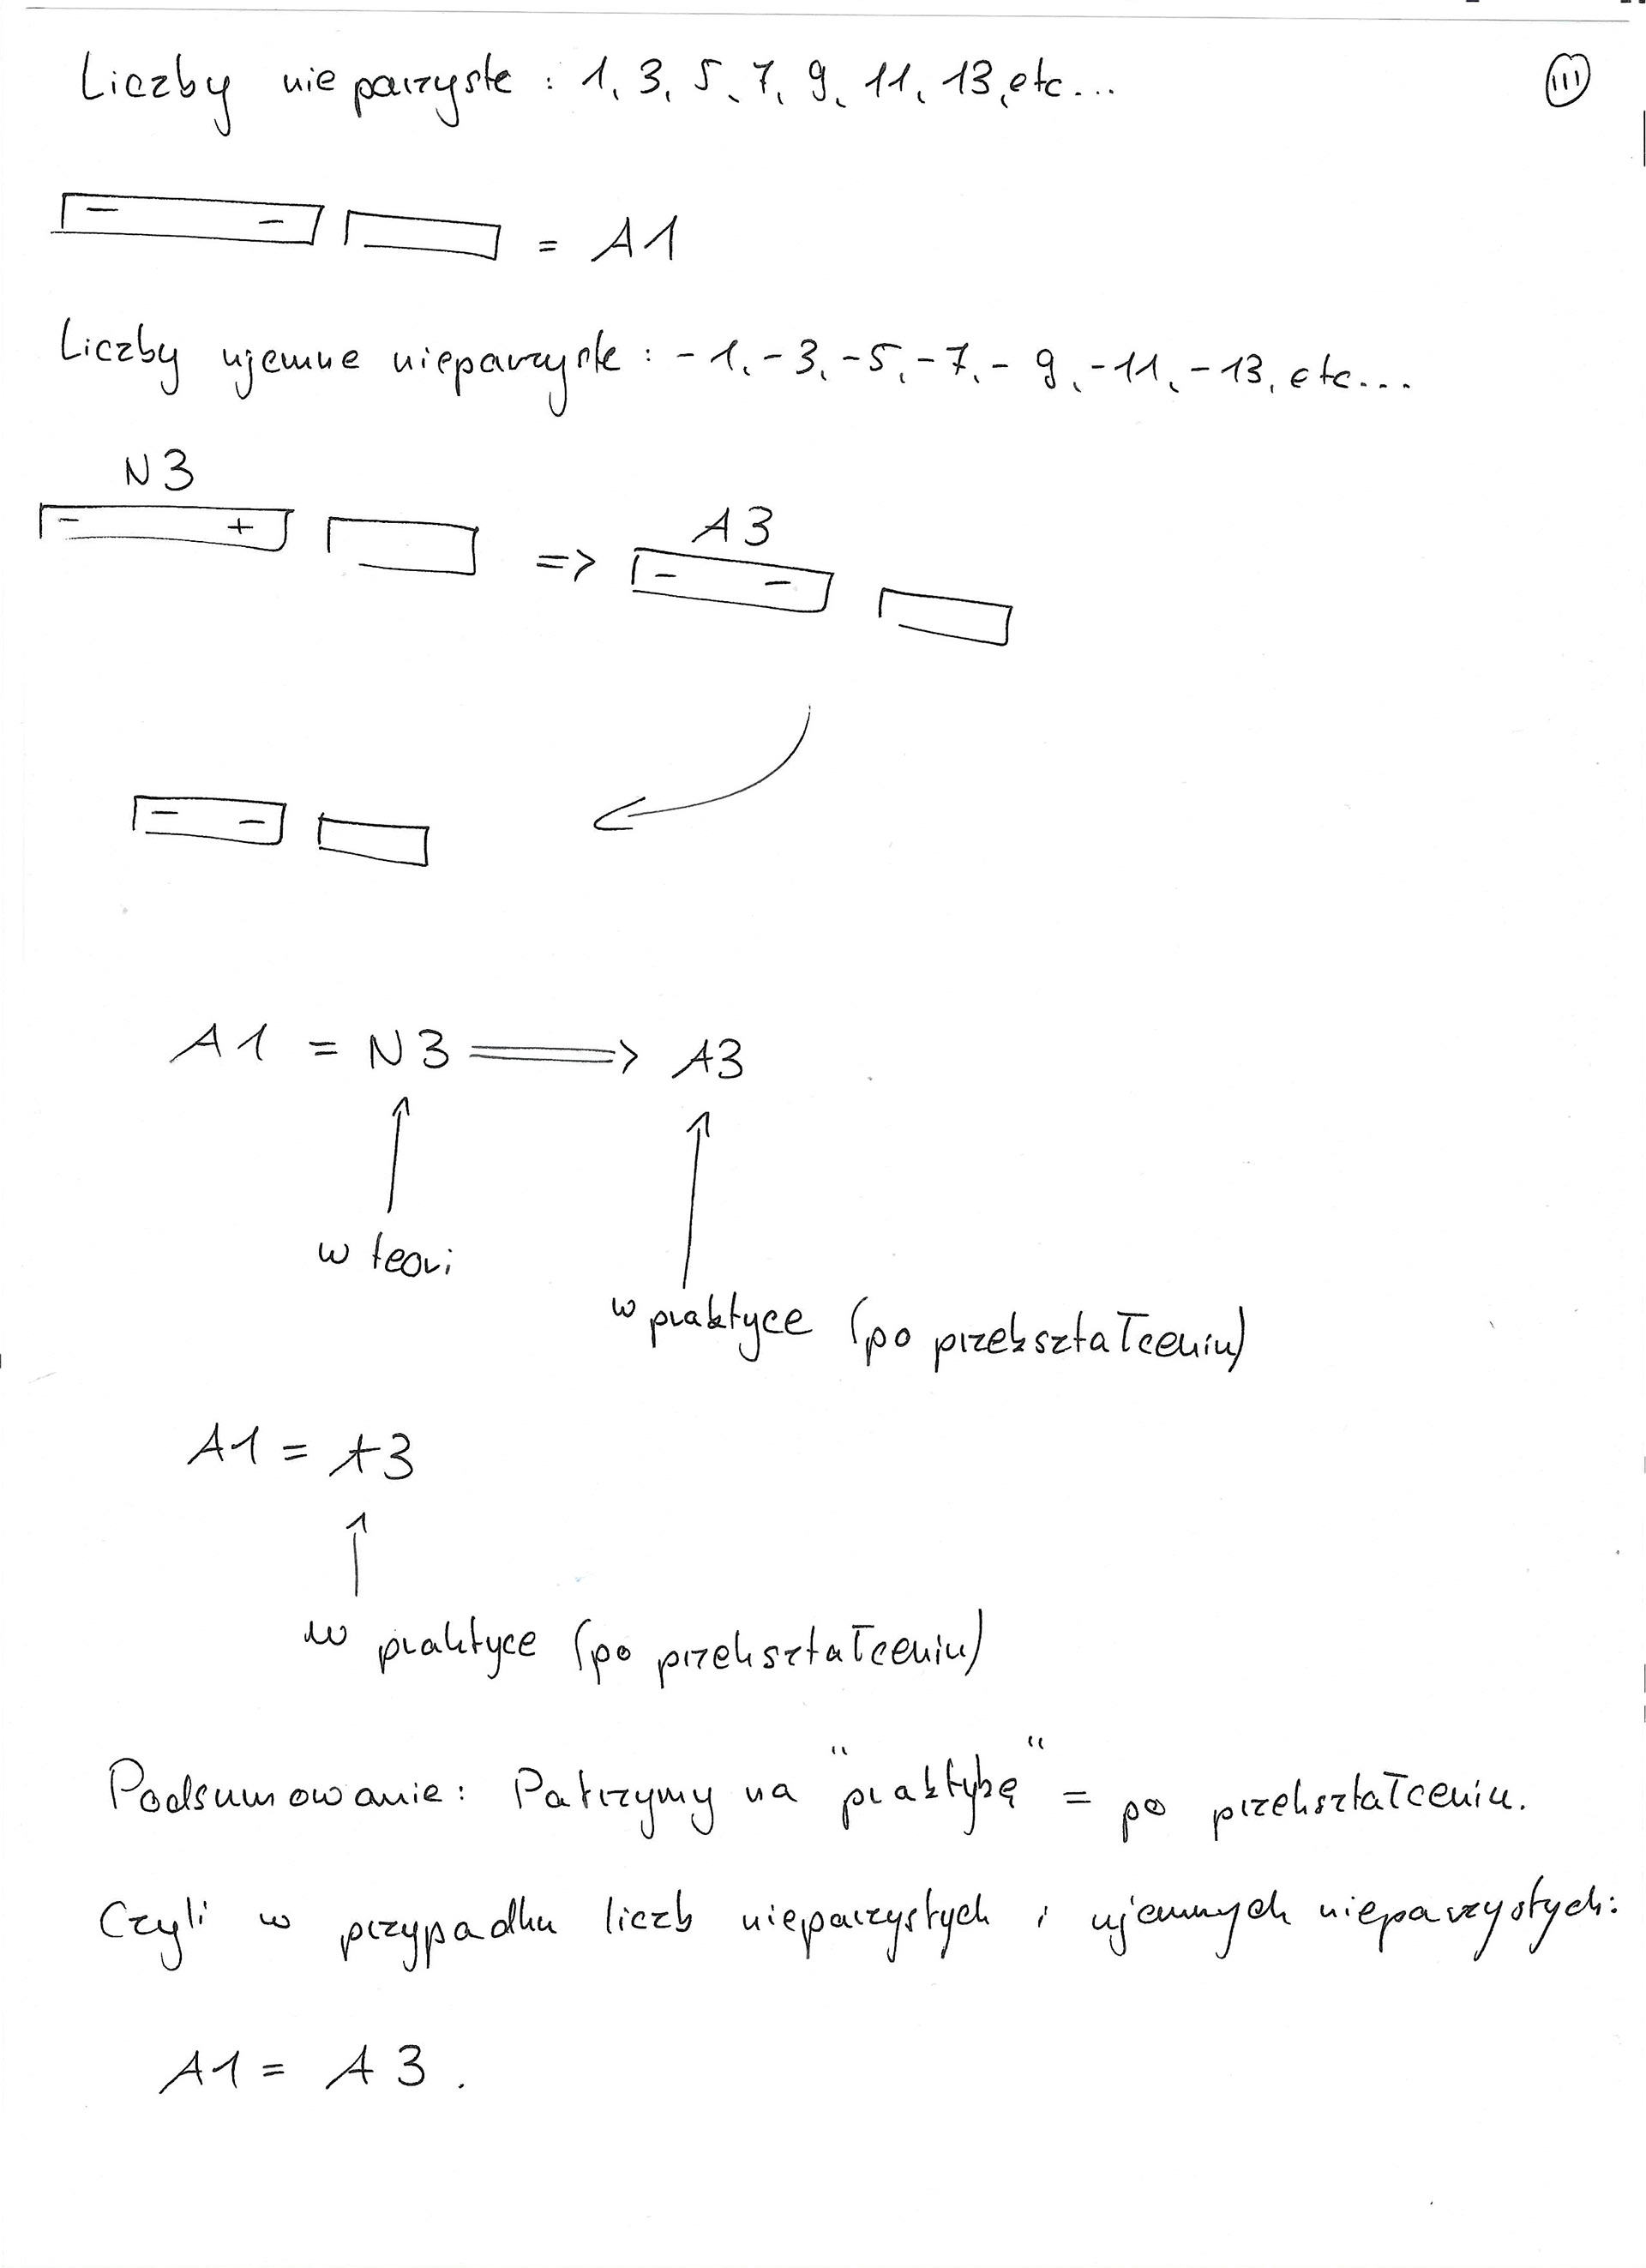 Liczby nieparzyste : 1, 3, 5, 7, 9, 11, 13, etc...
III
- - = A1
Liczby ujemne nieparzyste : -1, -3, -5, -7, -9, -11, -13, etc...
N3
- + => A3
- -
- -
A1 = N3 => A3
w teori
w praktyce (po przekształceniu)
A1 = A3
w praktyce (po przekształceniu)
Podsumowanie: Patrzymy na "praktykę" = po przekształceniu.
Czyli w przypadku liczb nieparzystych i ujemnych nieparzystych:
A1 = A3.